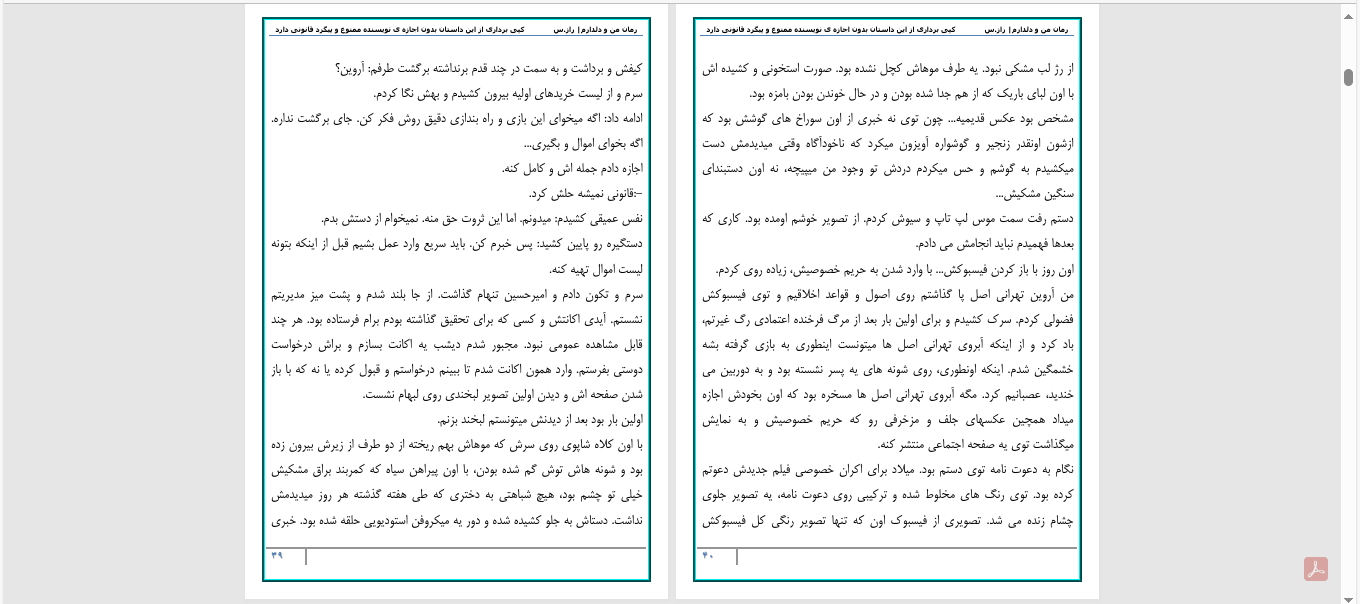 رمان من و دلدارم| راز.س کپی برداری از این داستان بدون اجازه ی نویسنده ممنوع و پیگرد قانونی دارد
کیفش و برداشت و به سمت در چند قدم برنداشته برگشت طرفم: آروین؟
سرم و از لیست خریدهای اولیه بیرون کشیدم و بهش نگا کردم.
ادامه داد: اگه میخوای این بازی و راه بندازی دقیق روش فکر کن. جای برگشت نداره.
اگه بخوای اموال و بگیری...
اجازه دادم جمله اش و کامل کنه.
–:قانونی نمیشه حلش کرد.
نفس عمیقی کشیدم: میدونم. اما این ثروت حق منه. نمیخوام از دستش بدم.
دستگیره رو پایین کشید: پس خبرم کن. باید سریع وارد عمل بشیم قبل از اینکه بتونه
لیست اموال تهیه کنه.
سرم و تکون دادم و امیرحسین تنهام گذاشت. از جا بلند شدم و پشت میز مدیریتم
نشستم. آیدی اکانتش و کسی که برای تحقیق گذاشته بودم برام فرستاده بود. هر چند
قابل مشاهده عمومی نبود. مجبور شدم دیشب یه اکانت بسازم و براش درخواست
دوستی بفرستم. وارد همون اکانت شدم تا ببینم درخواستم و قبول کرده یا نه که با باز
شدن صفحه اش و دیدن اولین تصویر لبخندی روی لبهام نشست.
اولین بار بود بعد از دیدنش میتونستم لبخند بزنم.
با اون کلاه شاپوی روی سرش که موهاش بهم ریخته از دو طرف از زیرش بیرون زده
بود و شونه هاش توش گم شده بودن، با اون پیراهن سیاه که کمربند براق مشکیش
خیلی تو چشم بود، هیچ شباهتی به دختری که طی هفته گذشته هر روز میدیدمش
نداشت. دستاش به جلو کشیده شده و دور یه میکروفن استودیویی حلقه شده بود. خبری
۳۹
رمان من و دلدارم| راز.س کپی برداری از این داستان بدون اجازه ی نویسنده ممنوع و پیگرد قانونی دارد
از رژ لب مشکی نبود. یه طرف موهاش کچل نشده بود. صورت استخونی و کشیده اش
با اون لبای باریک که از هم جدا شده بودن و در حال خوندن بودن بامزه بود.
مشخص بود عکس قدیمیه... چون توی نه خبری از اون سوراخ های گوشش بود که
ازشون اونقدر زنجیر و گوشواره آویزون میکرد که ناخودآگاه وقتی میدیدمش دست
میکشیدم به گوشم و حس میکردم دردش تو وجود من میپیچه، نه اون دستبندای
سنگین مشکیش...
دستم رفت سمت موس لپ تاپ و سیوش کردم. از تصویر خوشم اومده بود. کاری که
بعدها فهمیدم نباید انجامش می دادم.
اون روز با باز کردن فیسبوکش... با وارد شدن به حریم خصوصیش، زیاده روی کردم.
من آروین تهرانی اصل پا گذاشتم روی اصول و قواعد اخلاقیم و توی فیسبوکش
فضولی کردم. سرک کشیدم و برای اولین بار بعد از مرگ فرخنده اعتمادی رگ غیرتم،
باد کرد و از اینکه آبروی تهرانی اصل ها میتونست اینطوری به بازی گرفته بشه
خشمگین شدم. اینکه اونطوری، روی شونه های یه پسر نشسته بود و به دوربین می
خندید، عصبانیم کرد. مگه آبروی تهرانی اصل ها مسخره بود که اون بخودش اجازه
میداد همچین عکسهای جلف و مزخرفی رو که حریم خصوصیش و به نمایش
میگذاشت توی یه صفحه اجتماعی منتشر کنه.
نگام به دعوت نامه توی دستم بود. میلاد برای اکران خصوصی فیلم جدیدش دعوتم
کرده بود. توی رنگ های مخلوط شده و ترکیبی روی دعوت نامه، یه تصویر جلوی
چشام زنده می شد. تصویری از فیسبوک اون که تنها تصویر رنگی کل فیسبوکش
۴۰